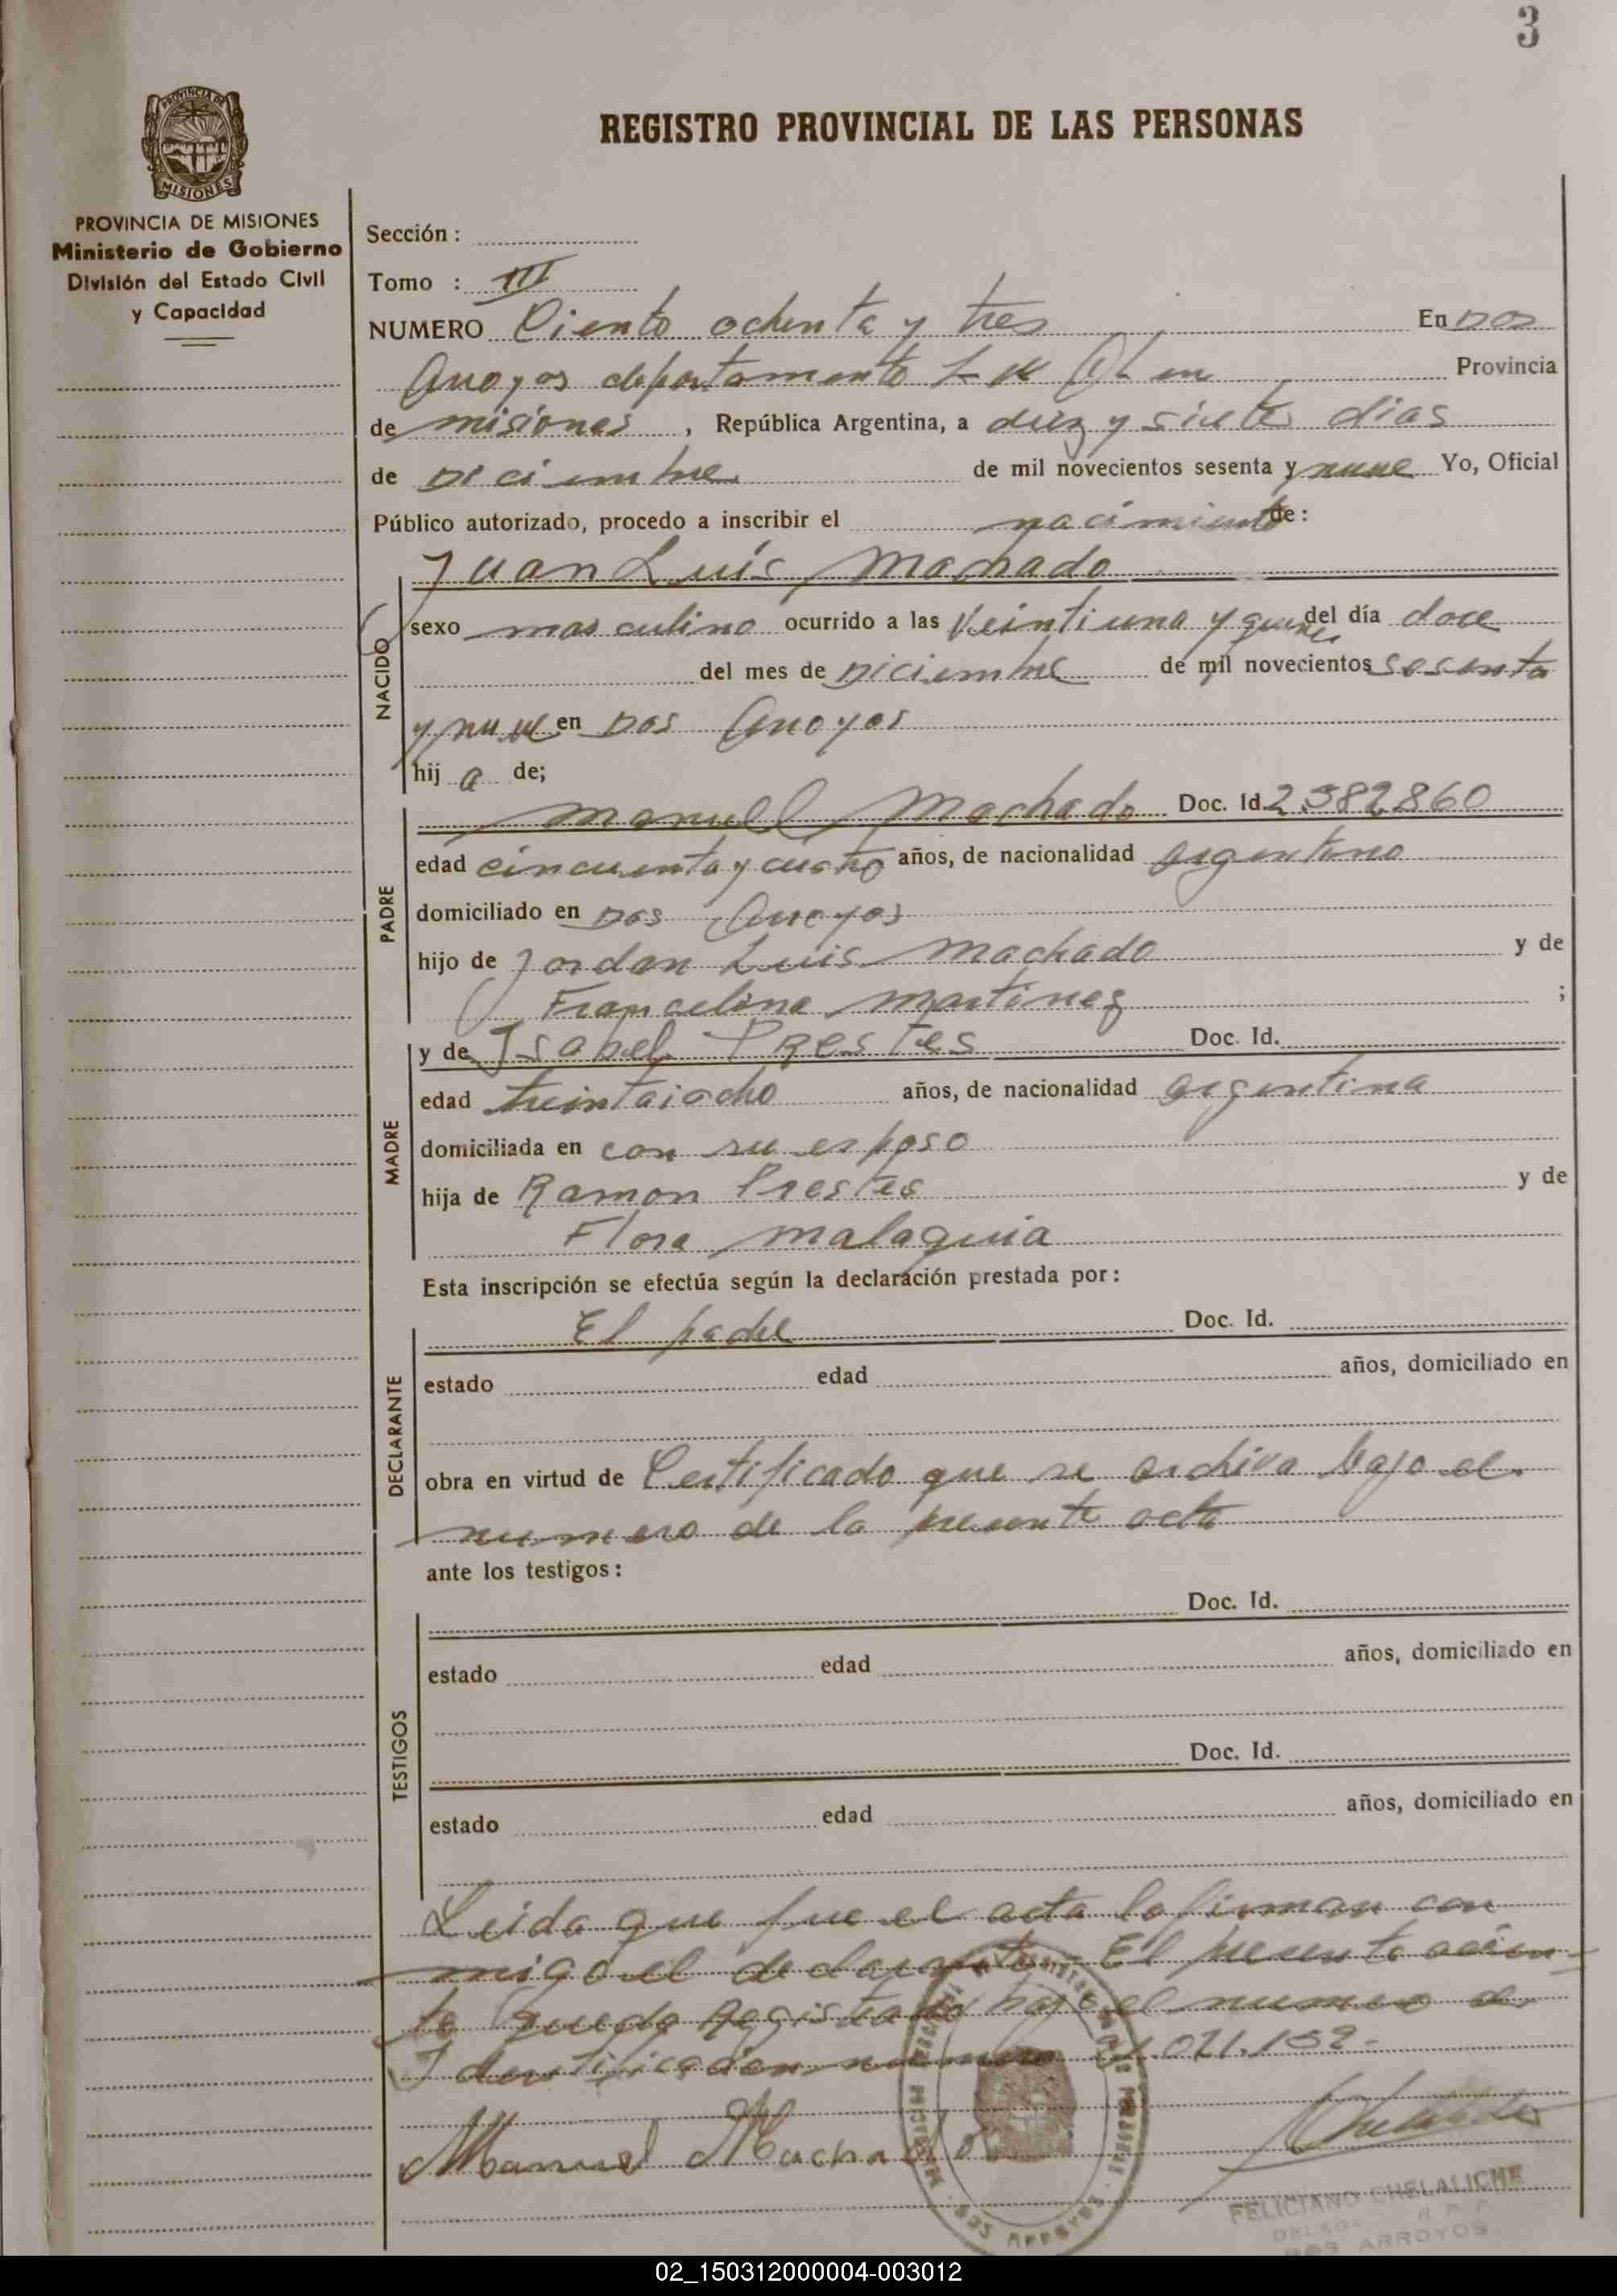 3
REGISTRO PROVINCIAL DE LAS PERSONAS
PROVINCIA DE
MISIONES
PROVINCIA DE MISIONES
Ministerio de Gobierno
División del Estado Civil
y Capacidad
Sección :
Tomo : III
NUMERO Ciento ochenta y tres En Dos
Arroyos departamento L N Alem Provincia
de misiones , República Argentina, a diez y siete dias
de Diciembre de mil novecientos sesenta y nueve Yo, Oficial
Público autorizado, procedo a inscribir el nacimiento de:
NACIDO
Juan Luís Machado
sexo masculino ocurrido a las Veintiuna y quince del día doce
del mes de Diciembre de mil novecientos sesenta
y nueve en Dos Arroyos
hij a de;
PADRE
Manuel Machado Doc. Id. 2582860
edad cincuenta y cuatro años, de nacionalidad argentino
domiciliado en Dos Arroyos
hijo de Jordan Luis Machado y de
Francelina Martinez ;
MADRE
y de Isabel Prestes Doc. Id.
edad treintaiocho años, de nacionalidad argentina
domiciliada en con su esposo
hija de Ramon Prestes y de
Flora malaquia
Esta inscripción se efectúa según la declaración prestada por :
DECLARANTE
El padre Doc. Id.
estado edad años, domiciliado en
obra en virtud de Certificado que se archiva bajo el
numero de la presente acta
ante los testigos :
TESTIGOS
Doc. Id.
estado edad años, domiciliado en
Doc. Id.
estado edad años, domiciliado en
Leida que fue el acta la firman con
migo el declarante. El presente
te queda Registrado bajo el numero de
Identificacion numero 021.152-
Manuel Machado
DOS ARROYOS
FELICIANO CHELALICHE
DOS ARROYOS
02_150312000004-003012